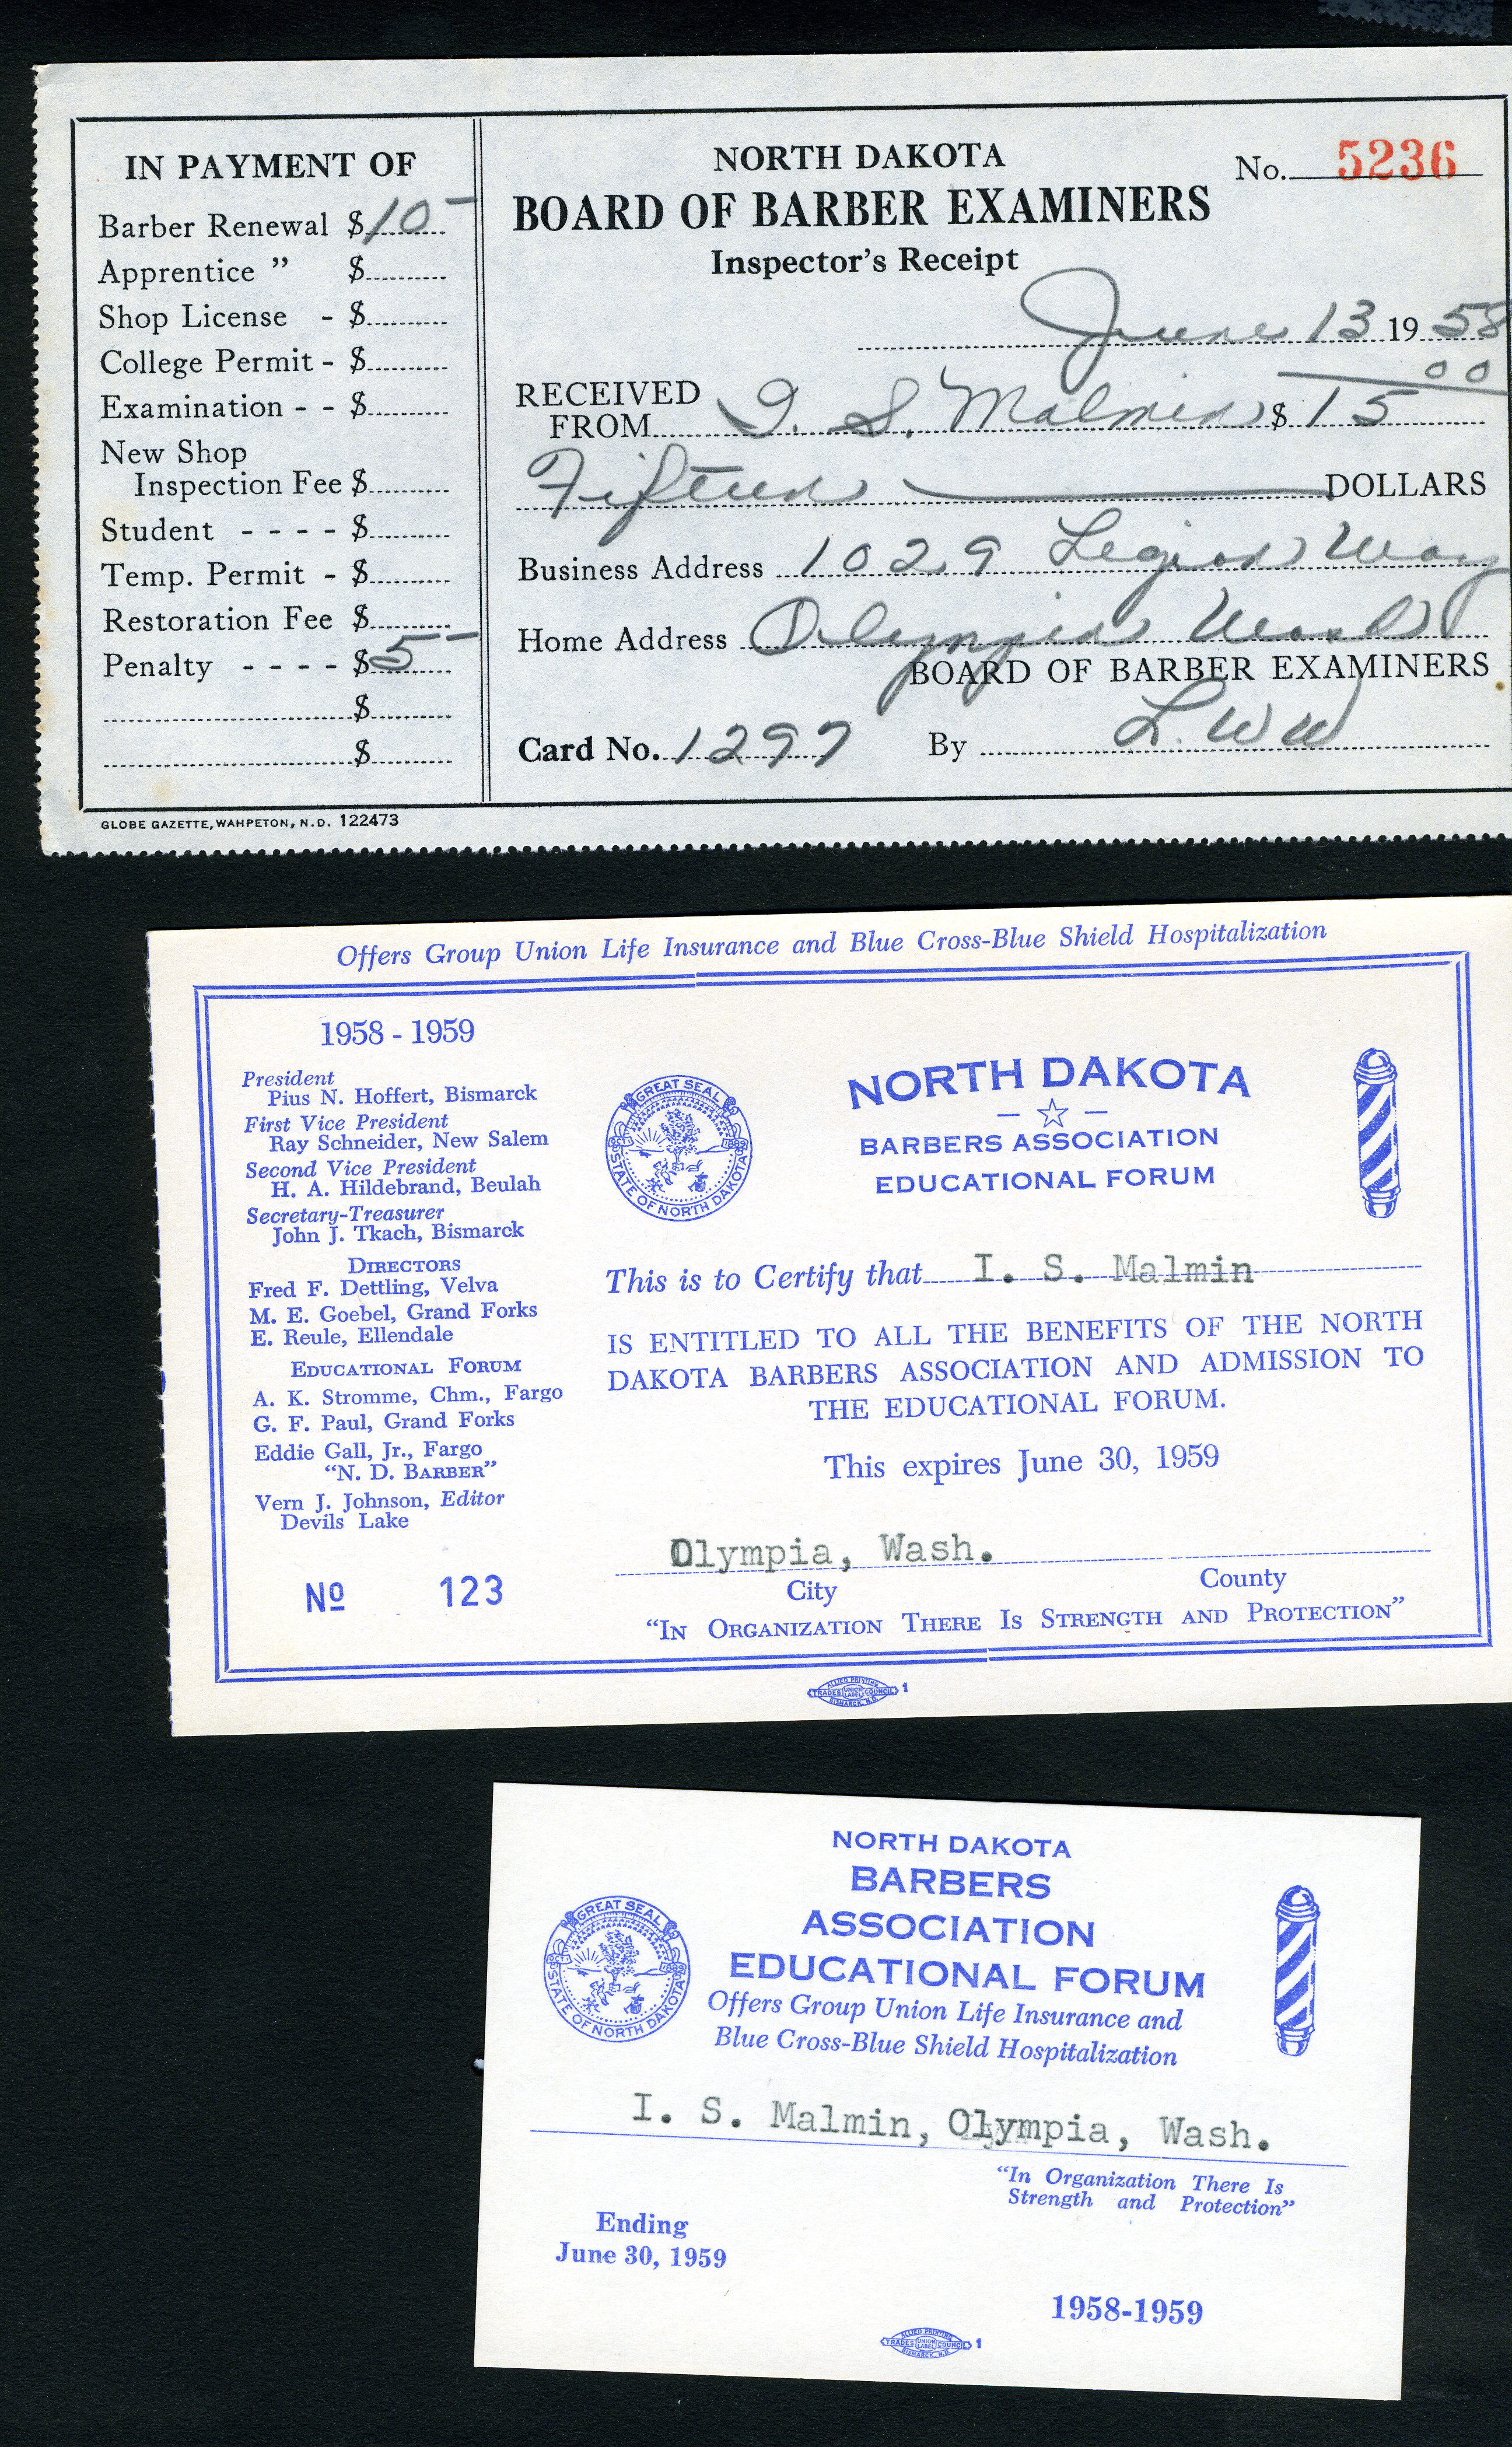 IN PAYMENT OF
Barber Renewal $10-
Apprentice " $
Shop License - $
College Permit - $
Examination - - $
New Shop
Inspection Fee $
Student - - - - $
Temp. Permit - $
Restoration Fee $
Penalty - - - - $5-
$
$
GLOBE GAZETTE, WAHPETON, N.D. 122473
NORTH DAKOTA
No. 5236
BOARD OF BARBER EXAMINERS
Inspector's Receipt
June 13 19 58
RECEIVED
FROM I. S. Malmin $ 15 00
Fifteen DOLLARS
Business Address 1029 Legion Way
Home Address Olympia Wash
BOARD OF BARBER EXAMINERS
Card No. 1297 By L. W W
Offers Group Union Life Insurance and Blue Cross-Blue Shield Hospitalization
1958 - 1959
President
Pius N. Hoffert, Bismarck
First Vice President
Ray Schneider, New Salem
Second Vice President
H. A. Hildebrand, Beulah
Secretary-Treasurer
John J. Tkach, Bismarck
DIRECTORS
Fred F. Dettling, Velva
M. E. Goebel, Grand Forks
E. Reule, Ellendale
EDUCATIONAL FORUM
A. K. Stromme, Chm., Fargo
G. F. Paul, Grand Forks
Eddie Gall, Jr., Fargo
"N. D. BARBER"
Vern J. Johnson, Editor
Devils Lake
No 123
GREAT SEAL
STATE OF NORTH DAKOTA
NORTH DAKOTA
BARBERS ASSOCIATION
EDUCATIONAL FORUM
This is to Certify that I. S. Malmin
IS ENTITLED TO ALL THE BENEFITS OF THE NORTH
DAKOTA BARBERS ASSOCIATION AND ADMISSION TO
THE EDUCATIONAL FORUM.
This expires June 30, 1959
Olympia, Wash.
City County
"IN ORGANIZATION THERE IS STRENGTH AND PROTECTION"
ALLIED PRINTING
TRADES UNION LABEL COUNCIL 1
BISMARCK, N.D.
NORTH DAKOTA
BARBERS
ASSOCIATION
EDUCATIONAL FORUM
GREAT SEAL
STATE OF NORTH DAKOTA
Offers Group Union Life Insurance and
Blue Cross-Blue Shield Hospitalization
I. S. Malmin, Olympia, Wash.
"In Organization There Is
Strength and Protection"
Ending
June 30, 1959
1958-1959
ALLIED PRINTING
TRADES UNION LABEL COUNCIL 1
BISMARCK, N.D.